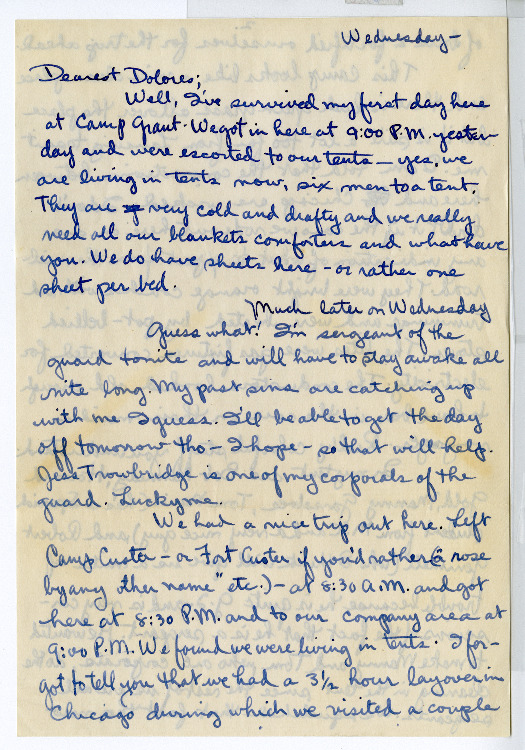 Wednesday-
Dearest Dolores;
Well, I've survived my first day here
at Camp Grant. We got in here at 9:00 P.M. yester-
day and were escorted to our tents - yes, we
are living in tents now, six men to a tent.
They are very cold and drafty and we really
need all our blankets comforters and what have
you. We do have sheets here - or rather one
sheet per bed.
Much later on Wednesday
Guess what! I'm sergeant of the
guard tonite and will have to stay awake all
nite long. My past sins are catching up
with me I guess. I'll be able to get the day
off tomorrow tho - I hope - so that will help.
Jess Trowbridge is one of my corporals of the
guard. Lucky me.
We had a nice trip out here. Left
Camp Custer - or Fort Custer if you'd rather ("a rose
by any other name" etc.) - at 8:30 A.M. and got
here at 8:30 P.M. and to our company area at
9:00 P.M. We found we were living in tents. I for-
got to tell you that we had a 3 1/2 hour layover in
Chicago during which we visited a couple